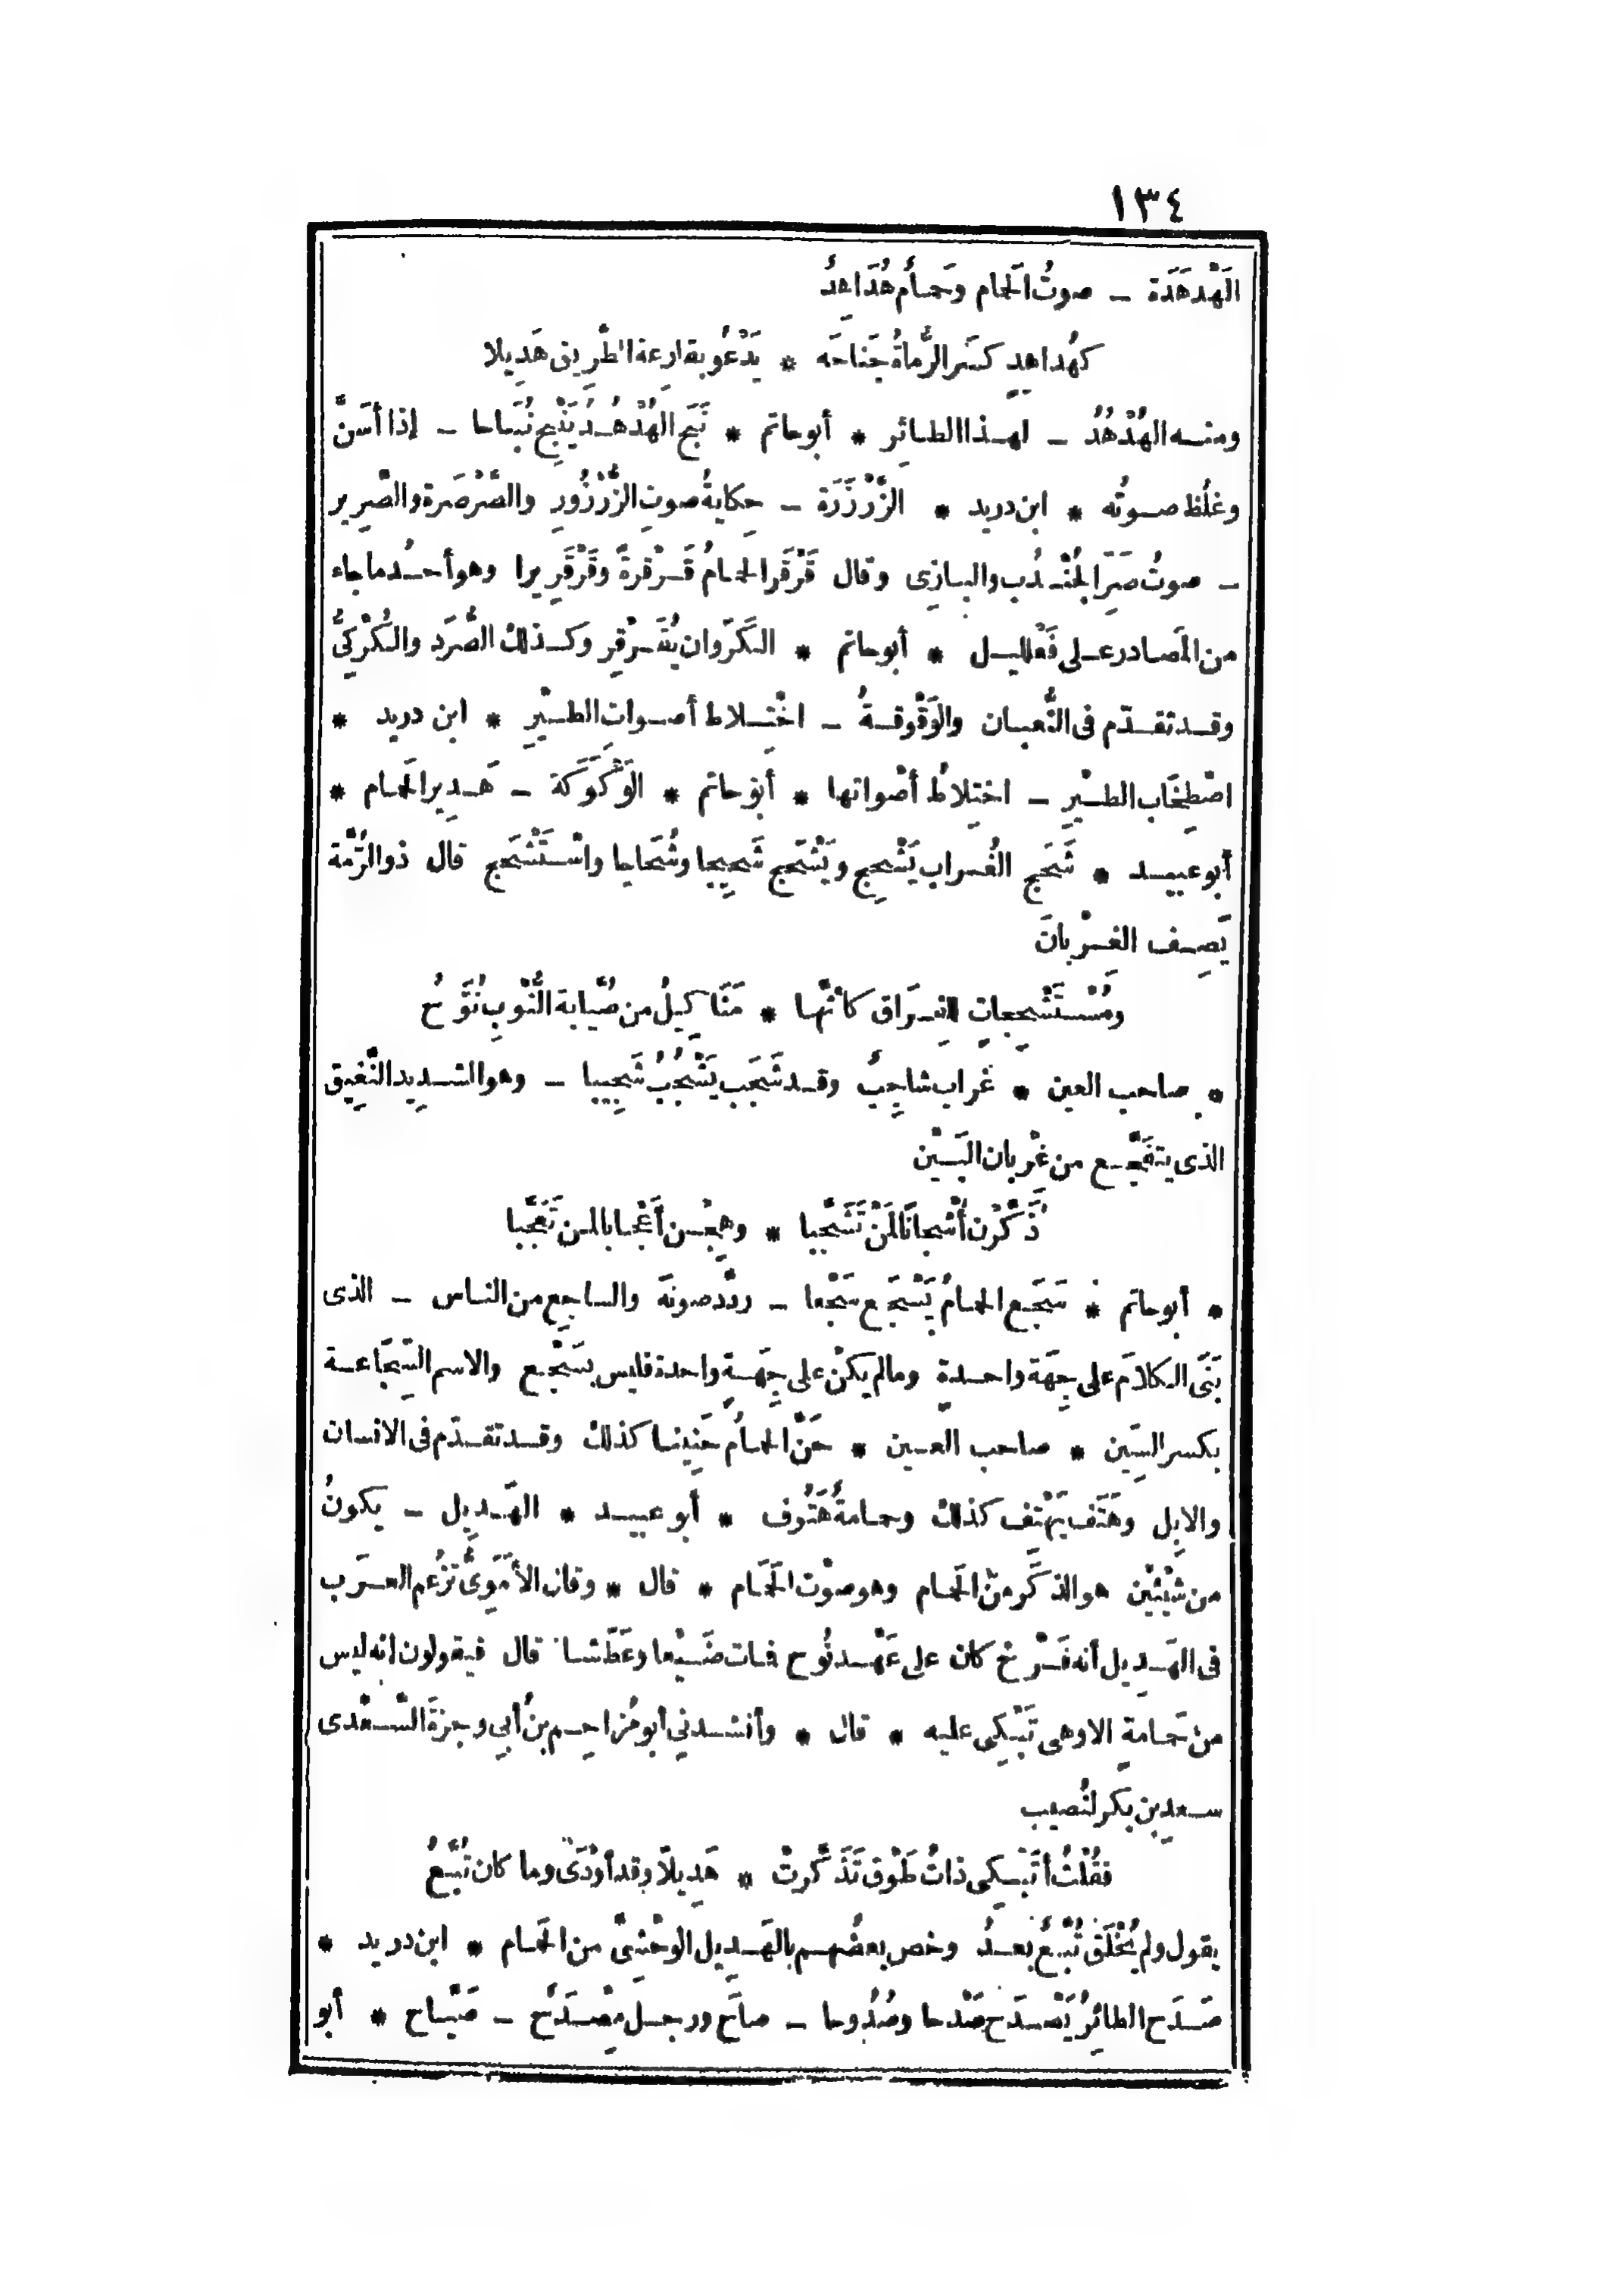 ١٣٤
الهَدْهَدَة – صوتُ الحَمام وحَمامٌ هُدَاهِدُ
كهُداهِدٍ كَسَر الرُّماةُ جَناحَه * يَدْعُو بقارِعة الطَّرِيق هَدِيلا
ومنه الهُدْهُدُ – لهذا الطائِر * أبو حاتم * نَبَح الهُدْهُدُ يَنْبِح نُبَاحا – إذا أسَنَّ
وغلُظ صوتُه * ابن دريد * الزَّرْزَرَة – حِكايةُ صوتِ الزُّرْزُورِ والصَّرْصَرة والصَّرِير
– صوتُ صَرَّ الجُنْدُب والبازِى وقال قَرْقَر الحمامُ قَرْقرةً وقَرْقَرِيرا وهو أحدُ ما جاء
من المَصادر على فَعْلَلِيل * أبو حاتم * الكَرَوان يُقَرْقِر وكذلك الصُّرَد والكُرْكِىُّ
وقد تقدّم فى الثُّعبان والوَقْوقةُ – اخْتِلاط أصواتِ الطيْرِ * ابن دريد *
اصْطِخَاب الطيْرِ – اختِلاطُ أصْواتها * أبو حاتم * الوَكْوَكَة – هَدِير الحَمام *
أبو عبيد * شَحَج الغُراب يَشْحِج ويَشْحَج شَحِيجا وشُحَاجا واسْتَشْحَج قال ذو الرُّمَّة
يَصِف الغِرْبانَ
ومُسْتَشْحِجاتٍ للفِرَاق كأنَّها * مَثَاكِيلُ من صُيَّابة النُّوبِ نُوَّحُ
* صاحب العين * غُراب شاجِبٌ وقد شَجَب يَشْجُبُ شَجِيبا – وهو الشديد النَّغِيق
الذى يتفَجَّع من غِرْبان البَيْن
ذَكَّرْن أشْجانًا لمَنْ تَشَجَّبا * وهِجْن أعْجابا لمن تَعَجَّبا
* أبو حاتم * سَجَع الحمامُ يَسْجَع سَجْعا – ردَّد صوتَه والساجِع من الناس – الذى
بَنَى الكلامَ على جِهَة واحدةٍ وما لم يكنْ على جِهَةٍ واحدة فليس بسَجْع والاسم السِّجَاعة
بكسر السِّين * صاحب العين * حَنَّ الحمامُ حَنِينا كذلك وقد تقدّم فى الانسان
والابِل وهَتَف يَهْتِف كذلك وحمامةٌ هَتُوف * أبو عبيد * الهَدِيل – يكونُ
من شَيْئَيْن هو الذكَر منَ الحَمام وهو صوْت الحَمَام * قال * وقال الأُمَوِىُّ تَزْعُم العرَب
فى الهَدِيل أنه فَرْخ كان على عَهْد نُوح فمات ضَيْعا وعَطَشا قال فيقولون انه ليس
منْ حَمامةٍ الا وهى تَبْكِى عليه * قال * وأنشدنى أبو مُزاحِم بنُ أبِى وجزةَ السَّعْدى
سعدِ بن بَكر لنُصيب
فقُلْتُ أتَبْكِى ذاتُ طَوْقٍ تَذَكَّرتْ * هَدِيلاً وقد أوْدَى وما كان تُبَّعُ
يقول ولم يُخْلَق تُبَّعٌ بعدُ وخص بعضُهم بالهَدِيل الوحْشِىَّ من الحَمام * ابن دريد *
صَدَح الطائِرُ يَصْدَح صَدْحا وصُدُوحا – صاَح ورجل مِصْدَحٌ – صَيَّاح * أبو